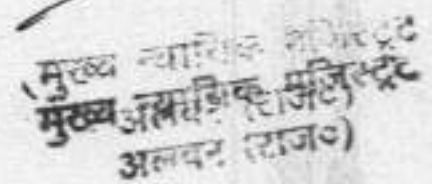 (मुख्य न्यायिक मजिस्ट्रेट
मुख्य न्यायिक मजिस्ट्रेट
अलवर (राज०)
अलवर (राज०)